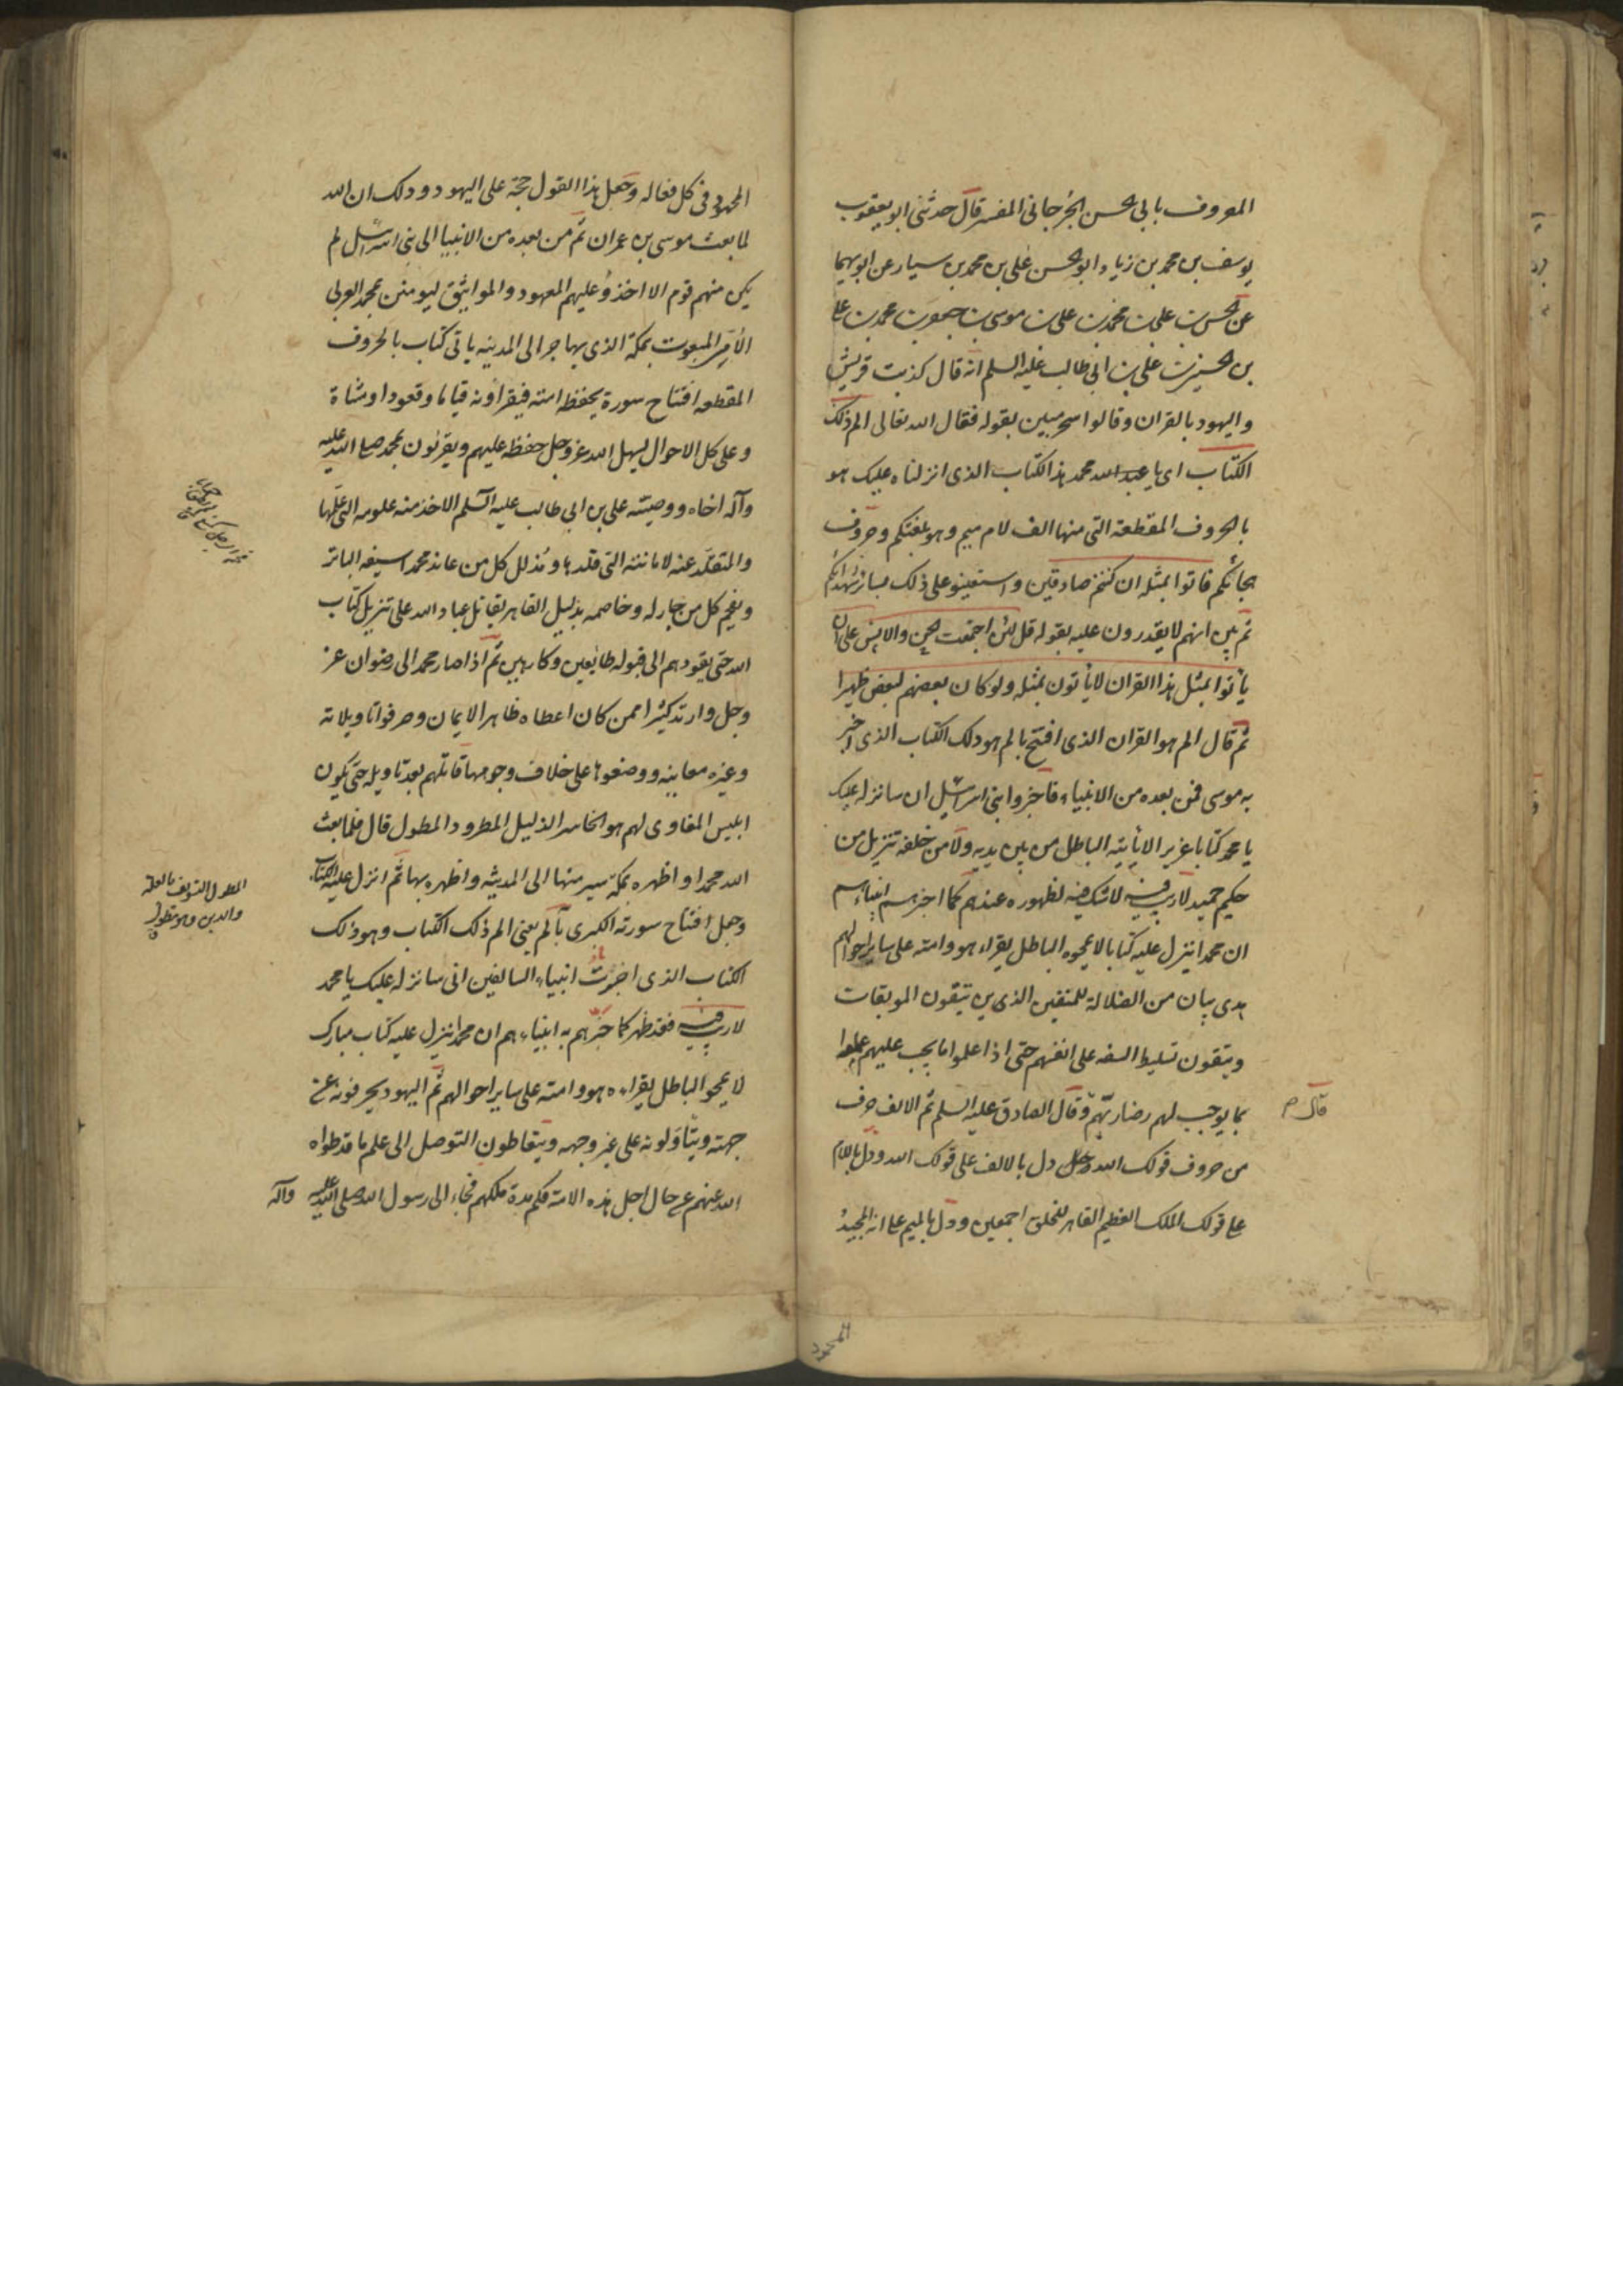 المعروف بابى الحسن الجرجانى المفسر قال حدثنى ابو يعقوب
يوسف بن محمد بن زياد وابو الحسن على بن محمد بن سيار عن ابويهما
عن الحسن بن على بن محمد بن على بن موسى بن جعفر بن محمد بن على
بن الحسين بن على بن ابى طالب عليه السلم انه قال كذبت قريش
واليهود بالقران وقالوا سحر مبين بقوله فقال الله تعالى الم ذلك
الكتاب اى يا عبد الله محمد هذا الكتاب الذى انزلناه عليك هو
بالحروف المقطعة التى منها الف لام ميم وهو بلغتكم وحروف
هجائكم فاتوا بمثله ان كنتم صادقين واستعينوا على ذلك بسائر شهدائكم
ثم بين انهم لا يقدرون عليه بقوله قل لئن اجتمعت الجن والانس على ان
يأتوا بمثل هذا القران لا يأتون بمثله ولو كان بعضهم لبعض ظهيرا
ثم قال الم هو القران الذى افتتح بالم هو ذلك الكتاب الذى اخبر
به موسى فمن بعده من الانبياء فاخبروا بنى اسرائيل ان سانزله عليك
يا محمد كتابا عزيزا لا يأتيه الباطل من بين يديه ولا من خلفه تنزيل من
حكيم حميد لا ريب فيه لا شك فيه لظهوره عندهم كما اخبرهم انبياءهم
ان محمدا ينزل عليه كتابا لا يمحوه الباطل يقراءه هو وامته على ساير احوالهم
هدى بيان من الضلالة للمتقين الذين يتقون الموبقات
ويتقون تسليط السفه على انفسهم حتى اذا علموا ما يجب عليهم عملوا
بما يوجب لهم رضا ربهم وقال الصادق عليه السلم ثم الالف حرف
قال م
من حروف قولك الله دل بالالف على قولك الله ودل باللام
على قولك الملك العظيم القاهر للخلق اجمعين ودل بالميم على انه المجيد
المحمود
المحمود فى كل فعاله وجعل هذا القول حجة على اليهود وذلك ان الله
لما بعث موسى بن عمران ثم من بعده من الانبيا الى بنى اسرائيل لم
يكن منهم قوم الا اخذوا عليهم العهود والمواثيق ليومنن بمحمد العربى
الامى المبعوث بمكة الذى يهاجر الى المدينه ياتى كتاب بالحروف
المقطعه افتتاح سورة يحفظه امته فيقراونه قياما وقعودا ومشاة
وعلى كل الاحوال يسهل الله عز وجل حفظه عليهم ويقرنون بمحمد صلى الله عليه
وآله اخاه ووصيته على بن ابى طالب عليه السلم الاخذ منه علومه التى علمها
والمتقلد عنه لامانته التى قلدها ومذلل كل من عاند محمدا بسيفه الباتر
ويفحم كل من جادله وخاصمه بدليل القاهر يقاتل عباد الله على تنزيل كتاب
الله حتى يقودهم الى قبوله طايعين وكارهين ثم اذا صار محمد الى رضوان الله عز
وجل وارتد كثير ممن كان اعطاه ظاهر الايمان وحرفوا تاويلاته
وغيره معاينه ووضعوها على خلاف وجوهها قاتلهم بعد تاويله حتى يكون
ابليس المغاوى لهم هو الخاسر الذليل المطرود المطول قال فلما بعث
الله محمدا واظهره بمكة سير منها الى المدينه واظهره بها ثم انزل عليه الكتاب
وجعل افتتاح سورته الكبرى بآلم يعنى الم ذلك الكتاب وهو ذلك
الكتاب الذى اخبرت انبياء السالفين انى سانزله عليك يا محمد
لا ريب فيه فقد ظهر كما خبرهم به انبياءهم ان محمدا ينزل عليه كتاب مبارك
لا يمحو الباطل يقراءه هو وامته على ساير احوالهم ثم اليهود يحرفونه عن
جهته ويتأولونه على غير وجهه ويتعاطون التوصل الى علم ما قد طواه
الله عنهم عن حال اجل هذه الامة فكم مدة ملكهم فجاء الى رسول الله صلى الله عليه وآله